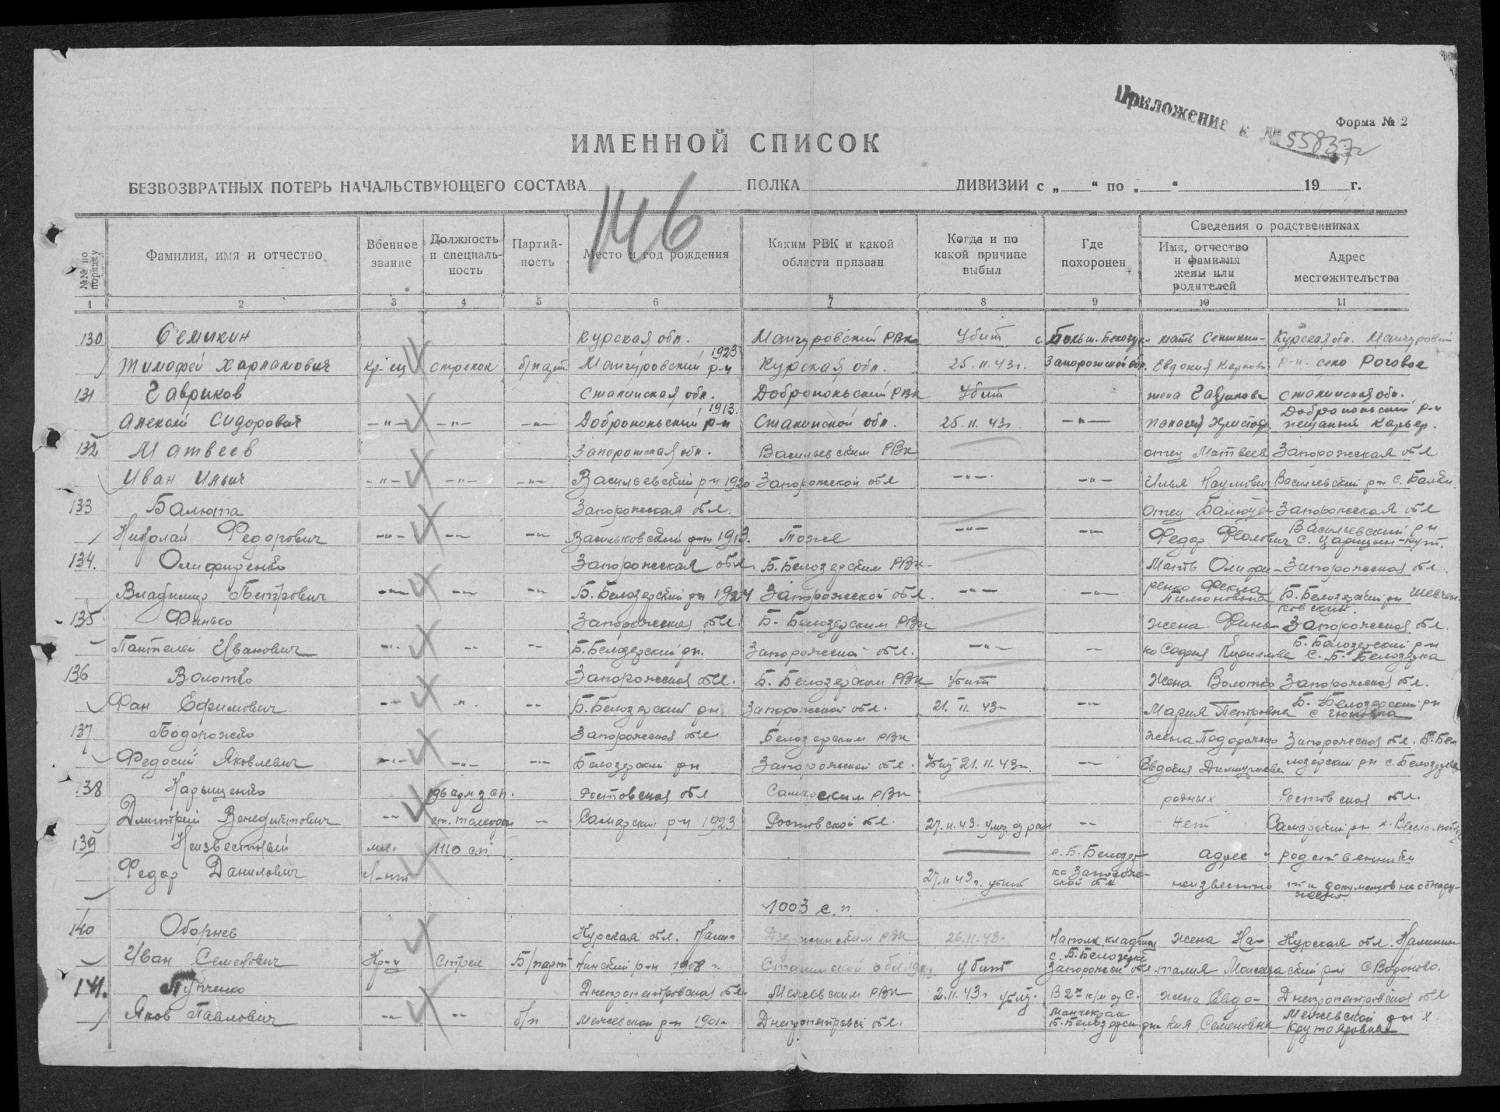 Приложение к № 55837с
Форма № 2
ИМЕННОЙ СПИСОК
БЕЗВОЗВРАТНЫХ ПОТЕРЬ НАЧАЛЬСТВУЮЩЕГО СОСТАВА ПОЛКА ДИВИЗИИ с „ “ по „ “ 19 г.
146
№№ по порядку
Фамилия, имя и отчество
Военное звание
Должность и специальность
Партийность
Место и год рождения
Каким РВК и какой области призван
Когда и по какой причине выбыл
Где похоронен
Сведения о родственниках
Имя, отчество и фамилия жены или родителей
Адрес местожительства
1 2 3 4 5 6 7 8 9 10 11
130 Семикин Курская обл. Мантуровский РВК Убит с. Больш. Белозерк- мать Семикин- Курская обл. Мантуровский
Тимофей Харлапович кр-ец стрелок б/парт. Мантуровский р-н 1923 Курская обл. 25.11.43г. Запорожской обл. Евдокия р-н село Роговое
131 Гавриков Сталинская обл. Добропольский РВК Убит жена Гаврикова Сталинская обл.
Алексей Сидорович -"- -"- -"- Добропольский р-н 1913. Сталинской обл. 25.11.43г. -"- Добропольский р-н песчаный карьер.
132 Матвеев Запорожская обл. Васильевским РВК отец Матвеев Запорожская обл
Иван Ильич -"- -"- -"- Васильевский р-н 1920 Запорожской обл -"- -"- Илья Наумович Васильевский р-н с.
133 Балюта Запорожская обл. отец Балюта Запорожская обл
Николай Федорович -"- -"- -"- Васильковский р-н 1913. Тоже -"- -"- Федор Васильевский р-н с.
134. Олифиренко Запорожская обл. Б. Белозерским РВК Мать Олифи- Запорожская обл.
Владимир Петрович -"- -"- -"- Б. Белозерский р-н 1924 Запорожской обл. -"- -"- ренко Фекла Б. Белозерский р-н
135 Финько Запорожская обл. Б. Белозерским РВК жена Финь- Запорожская обл.
Пантелей Иванович -"- -"- -"- Б. Белозерский р-н. Запорожской обл. -"- — ко София Кириловна Б. Белозерский р-н с. Б. Белозерка
136 Волотко Запорожская обл. Б. Белозерским РВК Убит Жена Волотко Запорожская обл.
Фан Ефимович -"- -"- Б. Белозерский р-н Запорожской обл. 21.11.43г -"- Мария Петровна Б. Белозерский р-н с
137 Подорожко Запорожская обл Белозерским РВК жена Подорожко Запорожская обл. Б. Бе-
Федосий Яковлевич -"- -"- Белозерский р-н Запорожской обл. Убит 21.11.43г. -"- Евдокия лозерский р-н с. Белозерка
138 Нарыщенко Ростовская обл Самарским РВК родных Ростовская обл.
Дмитрий Венедиктович -"- — Самарский р-н 1923 Ростовской обл. 27.11.43 умер от ран -"- нет Самарский р-н
139 Неизвестный мл. 1110 сп с. Б. Белозер- адрес и родственники
Федор Данилович л-нт 27.11.43г. убит ка Запорож- ской обл неизвестно т.к документов не обнару- жено.
1003 с.п.
140 Оборнев Курская обл. 26.11.43г. На полк. кладбище жена На- Курская обл. Калинин-
Иван Семенович Кр-ц Стрел Б/парт 1908 г. Сталинской обл. убит с. Б. Белозерка Запорожской обл талия ский р-н с Вороново.
141. Пупченко Днепропетровская обл. Межевским РВК 2.11.43г убит. жена Евдо- Днепропетровская обл
Яков Павлович -"- -"- б/п Межевской р-н 1901г. Днепропетровск обл. Б. Белозерск. р-н кия Семеновна Межевской р-н х.